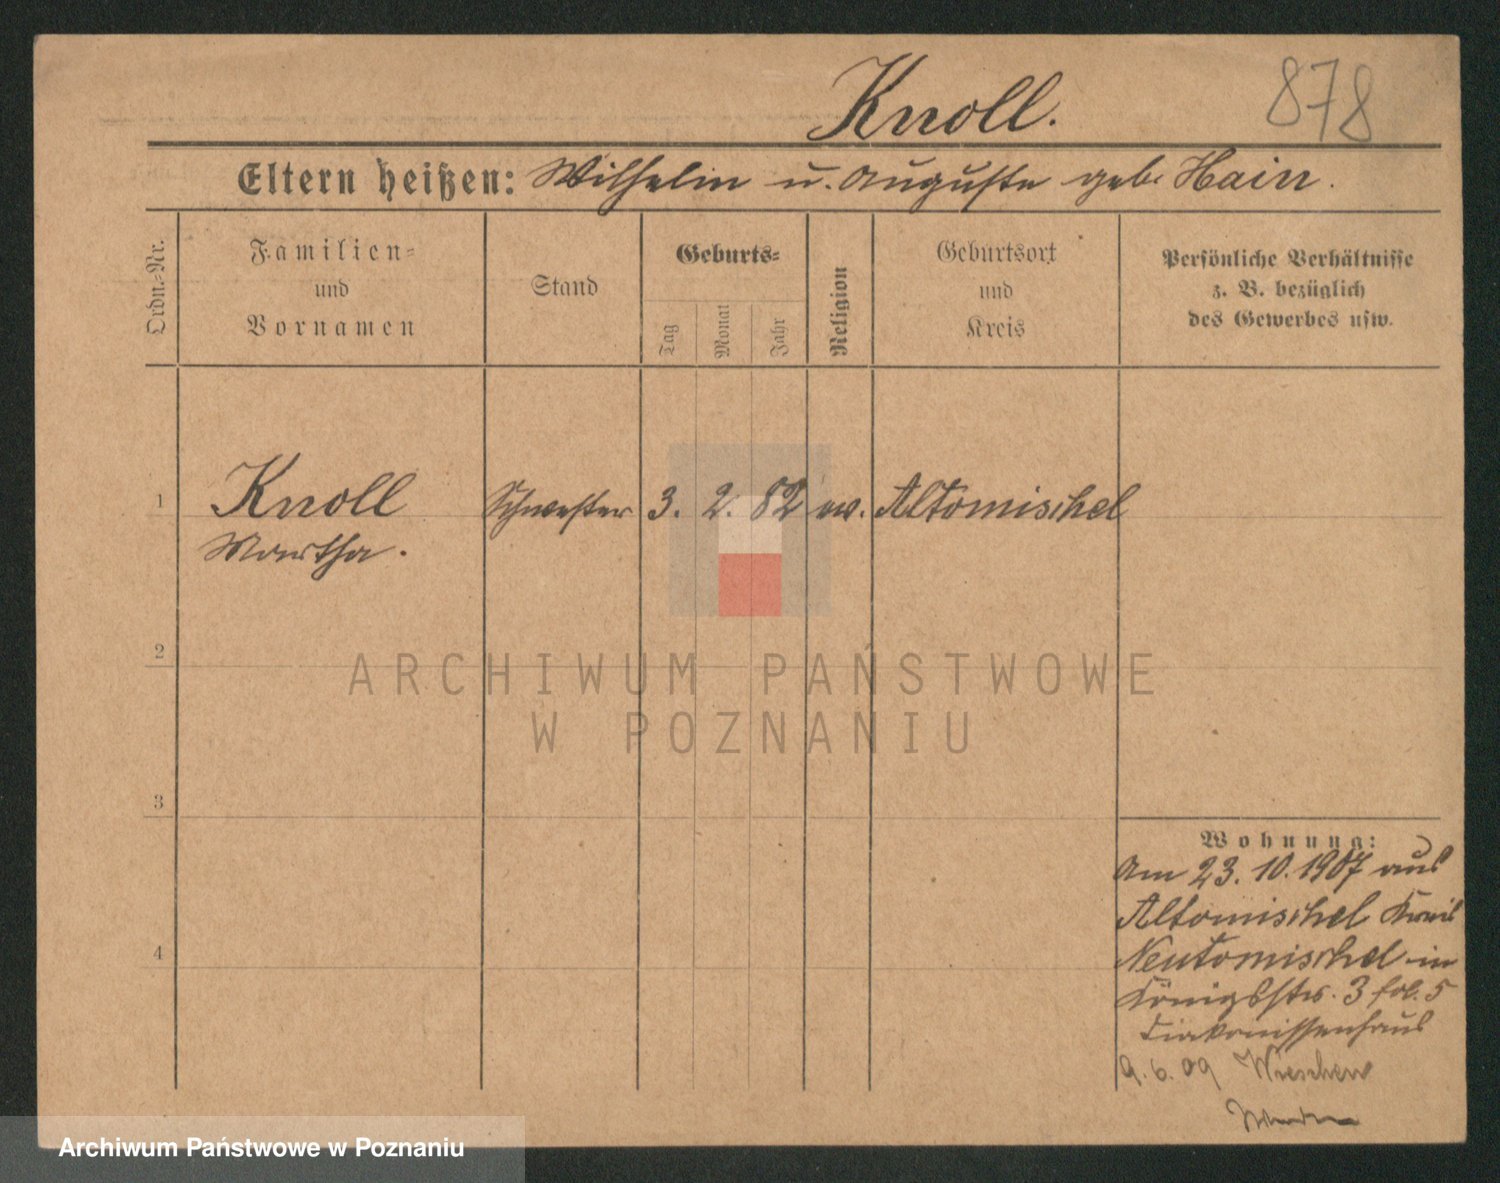 Knoll. 878
Eltern heißen: Wilhelm u. Auguste geb. Hain.
Ordn.-Nr.
Familien-
und
Vornamen
Stand
Geburts-
Tag
Monat
Jahr
Religion
Geburtsort
und
Kreis
Persönliche Verhältnisse
z. B. bezüglich
des Gewerbes usw.
1 Knoll Schwester 3. 2. 82 ev. Altomischel
Martha.
2
ARCHIWUM PAŃSTWOWE
W POZNANIU
3
Wohnung:
Am 23. 10. 1907 aus
Altomischel Kreis
4
Neutomischel in
Königstr. 3 fol. 5
Diakonissenhaus
9. 6. 09 Wreschen
Archiwum Państwowe w Poznaniu